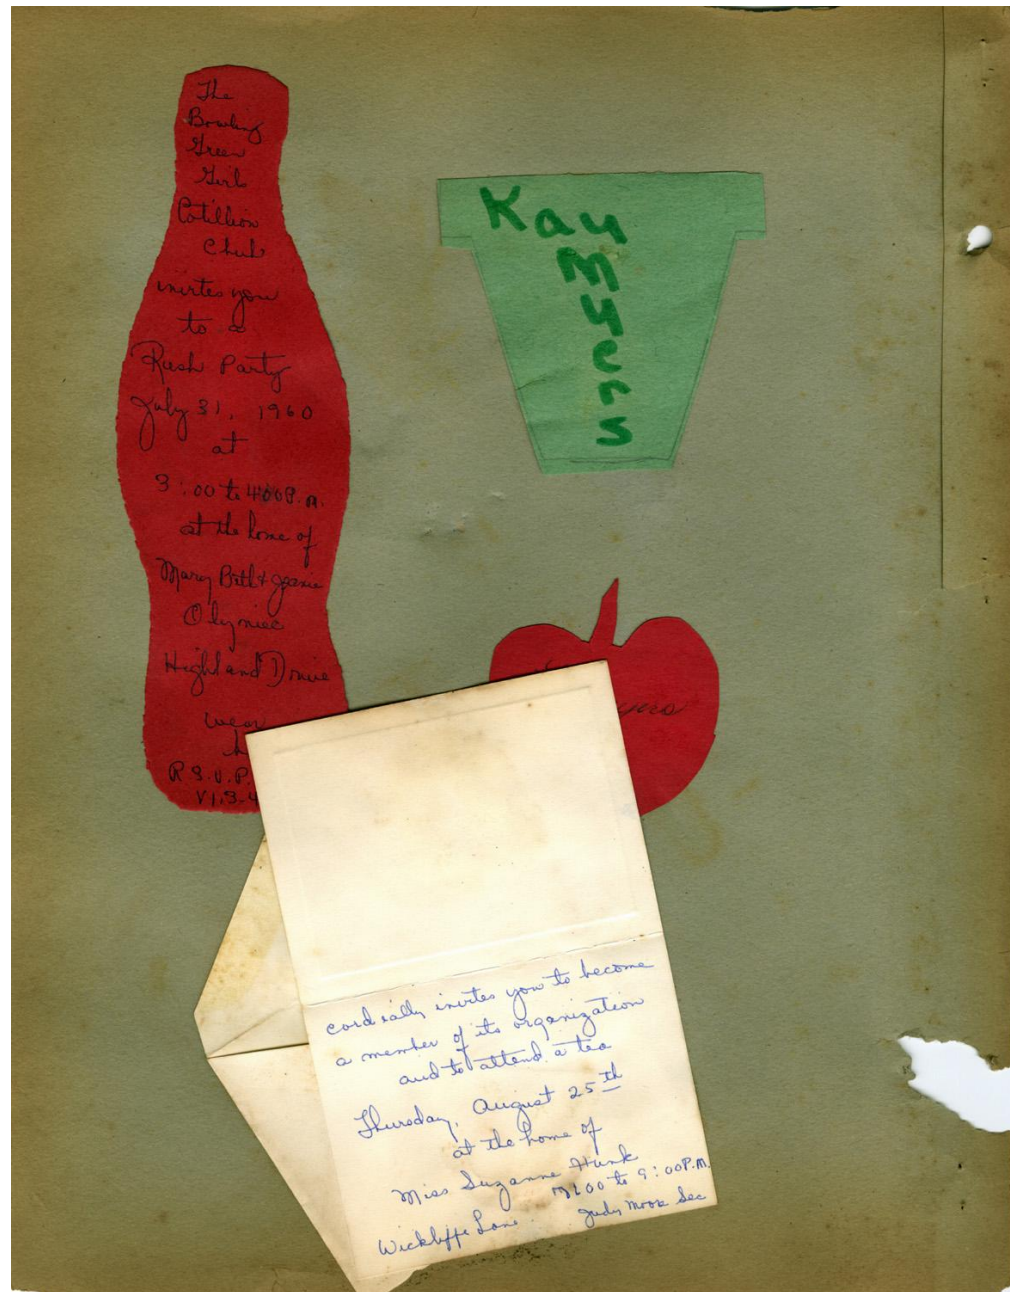 The
Bowling
Green
Girls
Cotillion
Club
invites you
to a
Rush Party
July 31, 1960
at
3:00 to 4:00 P.M.
at the home of
Mary Beth & Jeanie
Olyniec
Highland Drive
wear
R.S.V.P.
VI.3-4
Kay
M
y
e
r
s
yers
cordially invites you to become
a member of its organization
and to attend a tea
Thursday, August 25th
at the home of
Miss Suzanne Hunk
7:00 to 9:00 P.M.
Wickliffe Lane
Judy Mook Sec